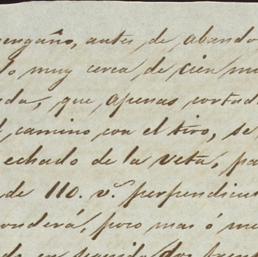 sengaño, antes de abando
lo muy cerca de cien me
da, que apenas cortad
l camino con el tiro, se
echado de la veta, pa
de 110. v.s perpendicu
onderá, poco mas ó me
de en seguida dos